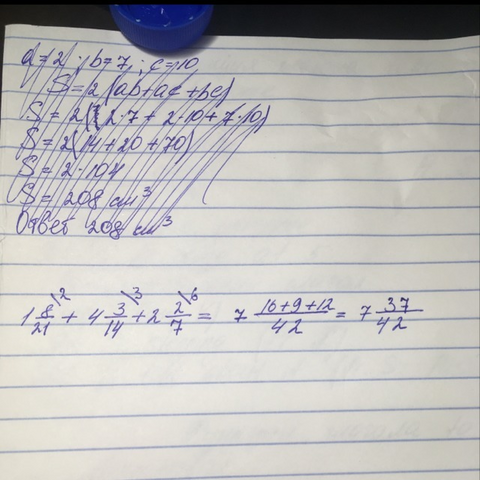 a=2; b=7; c=10
S=2(ab+ac+bc)
S=2(2·7+2·10+7·10)
S=2(14+20+70)
S=2·104
S=208 см³
Ответ 208 см³
1 8/21 \2 + 4 3/14 \3 + 2 2/7 \6 = 7 (16+9+12)/42 = 7 37/42